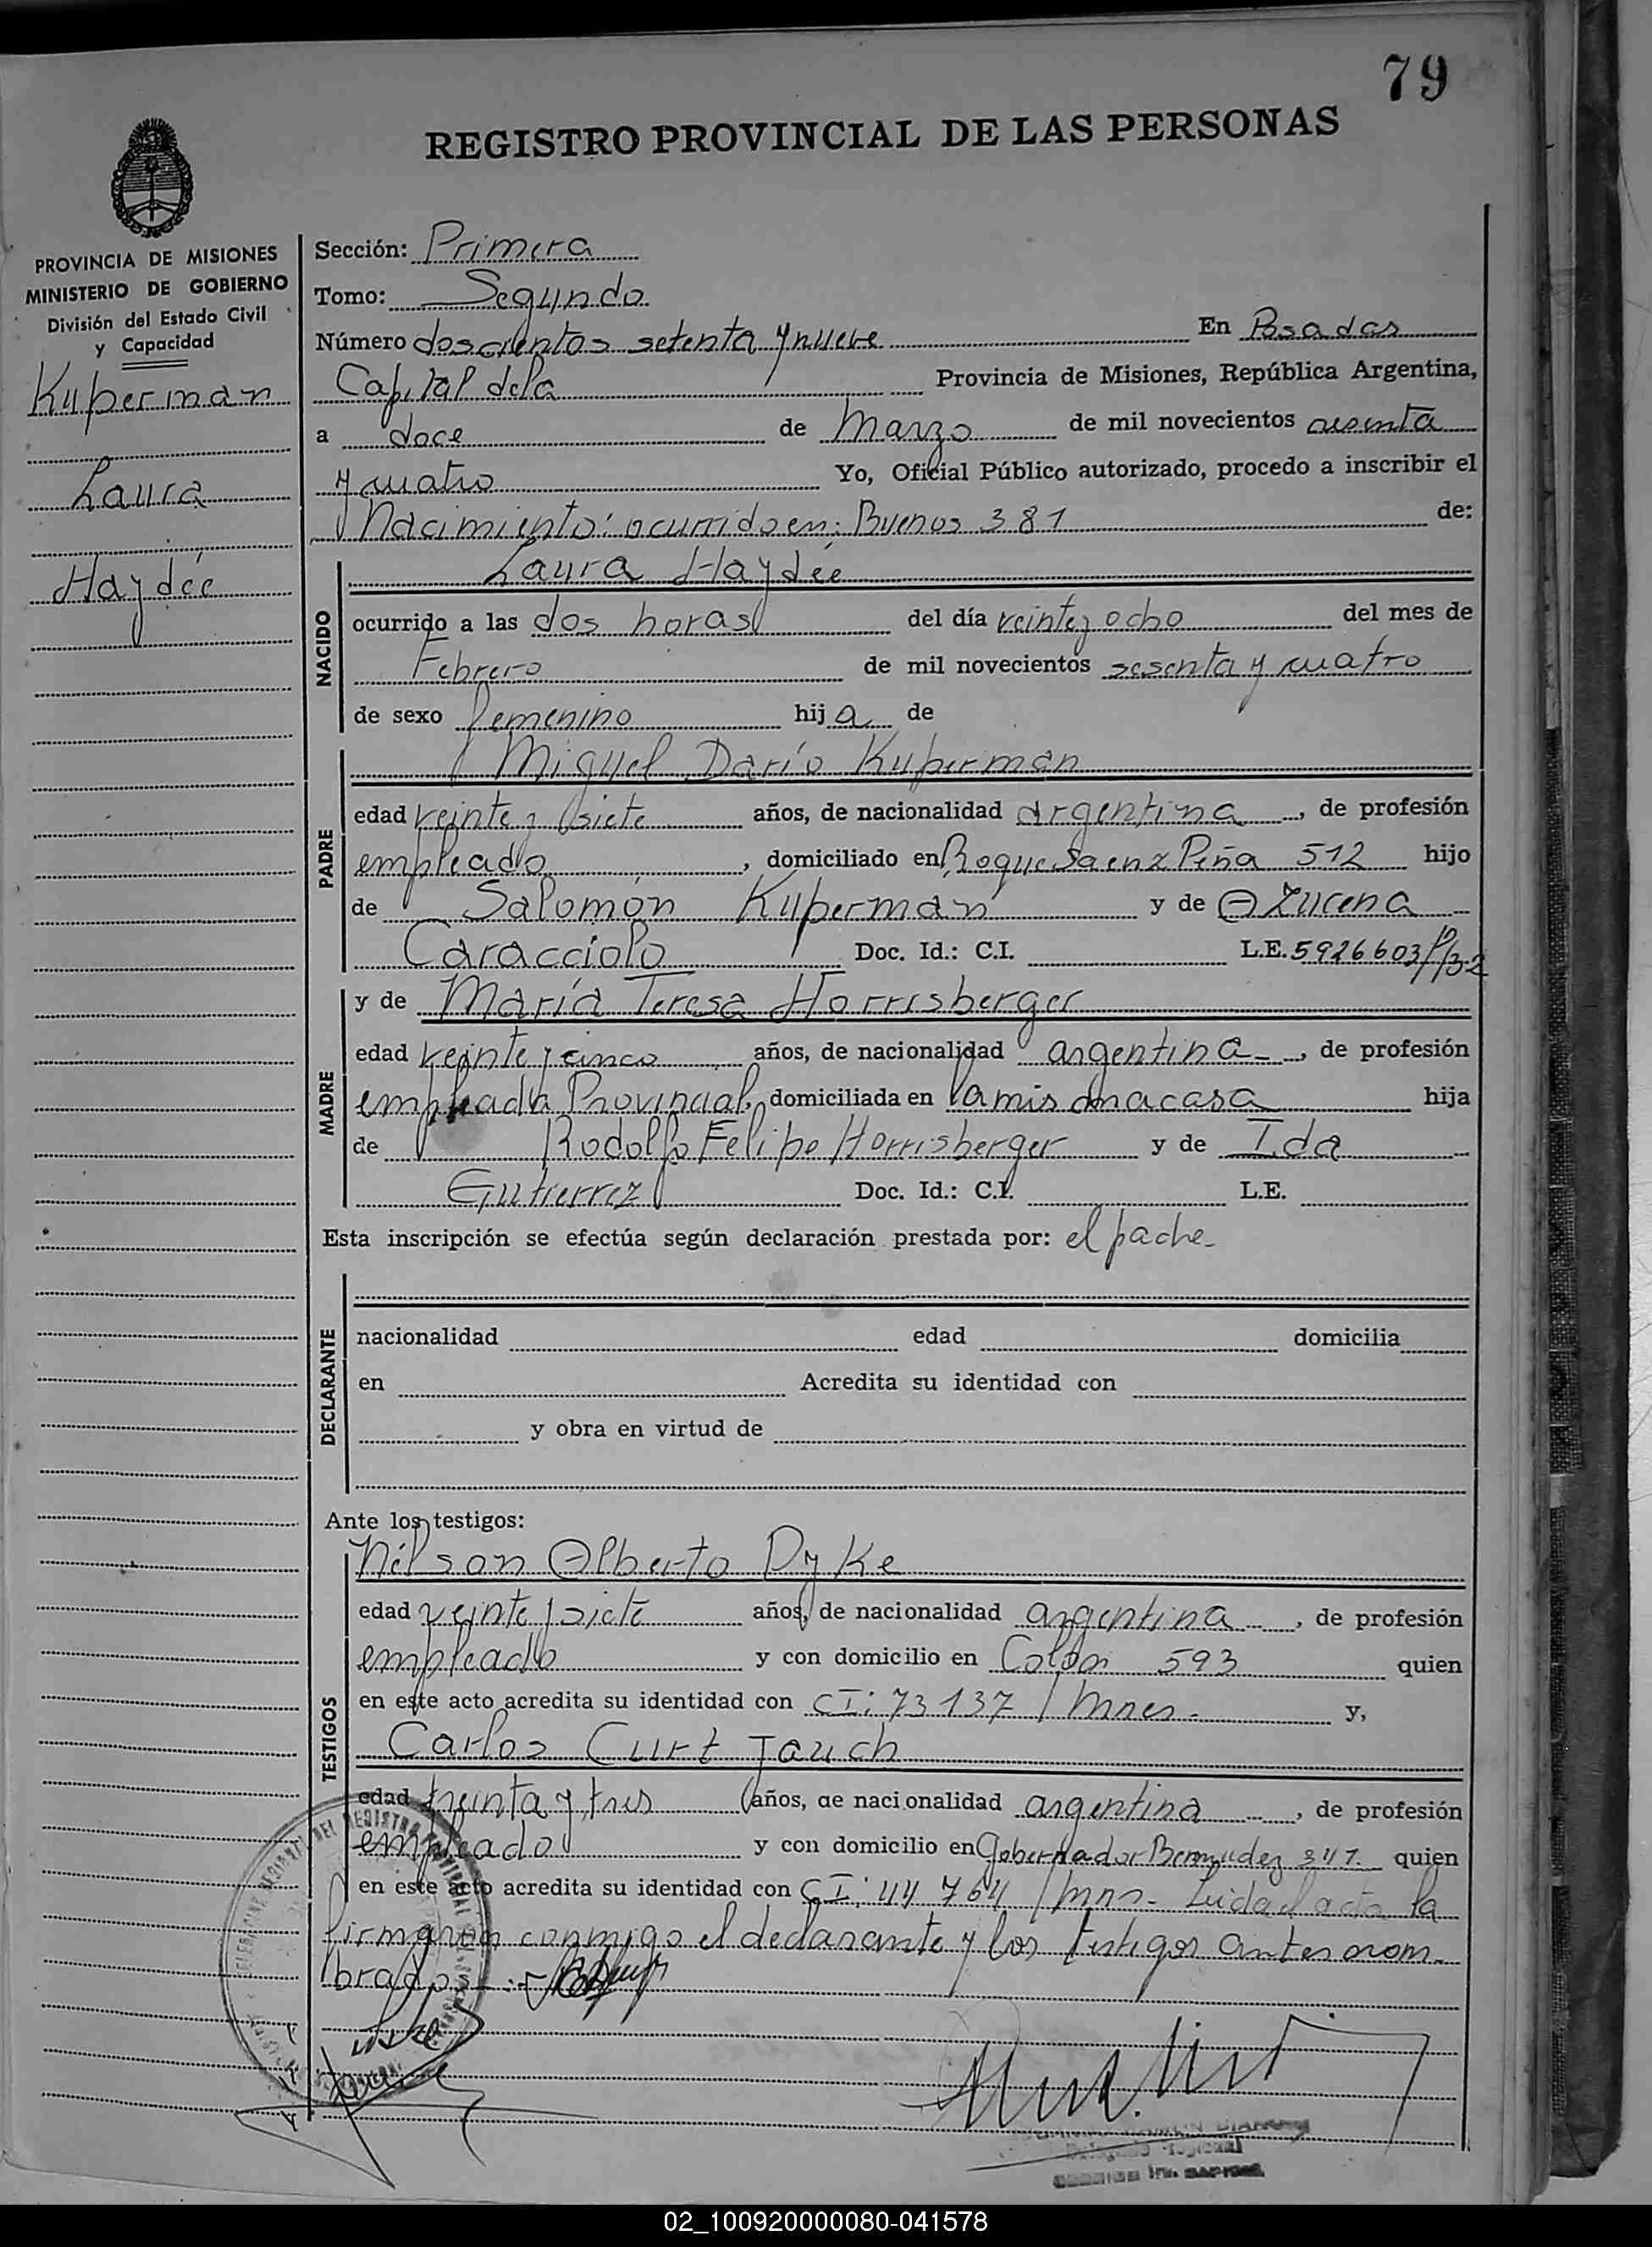 79
REGISTRO PROVINCIAL DE LAS PERSONAS
PROVINCIA DE MISIONES
MINISTERIO DE GOBIERNO
División del Estado Civil
y Capacidad
Kuperman
Laura
Haydée
Sección: Primera
Tomo: Segundo
Número doscientos setenta y nueve En Posadas
Capital dela Provincia de Misiones, República Argentina,
a doce de Marzo de mil novecientos sesenta
y cuatro Yo, Oficial Público autorizado, procedo a inscribir el
Nacimiento: ocurrido en: Buenos 381 de:
NACIDO
Laura Haydée
ocurrido a las dos horas del día veinte y ocho del mes de
Febrero de mil novecientos sesenta y cuatro
de sexo femenino hij a de
PADRE
Miguel Darío Kuperman
edad veinte y siete años, de nacionalidad argentina, de profesión
empleado, domiciliado en Roque Saenz Peña 512 hijo
de Salomón Kuperman y de Azucena
Caracciolo Doc. Id.: C.I. L.E. 5926603
MADRE
y de María Teresa Horrisberger
edad veinte y cinco años, de nacionalidad argentina, de profesión
empleada Provincial, domiciliada en la misma casa hija
de Rodolfo Felipe Horrisberger y de Ida
Gutierrez Doc. Id.: C.I. L.E.
Esta inscripción se efectúa según declaración prestada por: el padre
DECLARANTE
nacionalidad edad domicilia
en Acredita su identidad con
y obra en virtud de
Ante los testigos:
TESTIGOS
Nilson Alberto Dyke
edad veinte y siete años, de nacionalidad argentina, de profesión
empleado y con domicilio en Colón 593 quien
en este acto acredita su identidad con CI: 73137 / Mnes. y,
Carlos Curt Tauch
edad treinta y tres años, de nacionalidad argentina, de profesión
empleado y con domicilio en Gobernador Bermudez quien
en este acto acredita su identidad con CI: 44764 / Mns - Leida el acta la
firmaron conmigo el declarante y los testigos antes nom-
brados
02_100920000080-041578